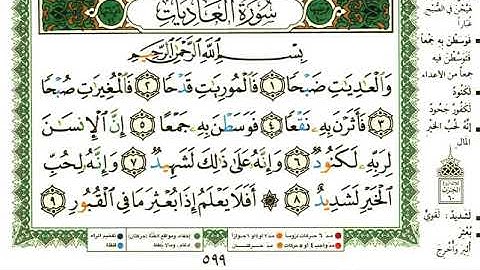 سُورَةُ العَادِيَاتِ
بِسْمِ اللَّهِ الرَّحْمَٰنِ الرَّحِيمِ
وَالْعَادِيَاتِ ضَبْحًا ١ فَالْمُورِيَاتِ قَدْحًا ٢ فَالْمُغِيرَاتِ صُبْحًا
٣ فَأَثَرْنَ بِهِ نَقْعًا ٤ فَوَسَطْنَ بِهِ جَمْعًا ٥ إِنَّ الْإِنسَانَ
لِرَبِّهِ لَكَنُودٌ ٦ وَإِنَّهُ عَلَىٰ ذَٰلِكَ لَشَهِيدٌ ٧ وَإِنَّهُ لِحُبِّ
الْخَيْرِ لَشَدِيدٌ ٨ أَفَلَا يَعْلَمُ إِذَا بُعْثِرَ مَا فِي الْقُبُورِ ٩
٥٩٩
فَوَسَطْنَ بِهِ جَمْعًا
فَتَوَسَّطْنَ فِيهِ
جمعاً من الأعداء
لَكَنُودٌ
لَكَفُورٌ جَحُودٌ
إِنَّهُ لِحُبِّ الْخَيْرِ
المال
لَشَدِيدٌ: لَقَوِيٌّ
بُعْثِرَ
أُثِيرَ وَأُخْرِجَ